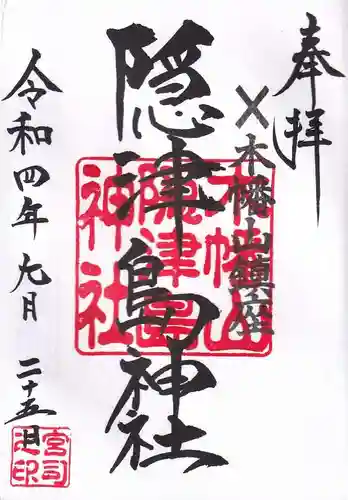 奉拝
木幡山鎮座
隠津島神社
令和四年九月二十五日
木幡山
隠津島
神社
宮司之印